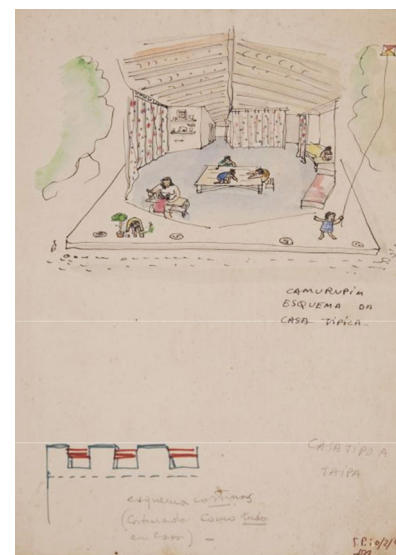 CAMURUPIM
ESQUEMA DA
CASA TIPICA
CASA TIPO A
TAIPA
esquema cortinas
(costurado como tudo
em casa)